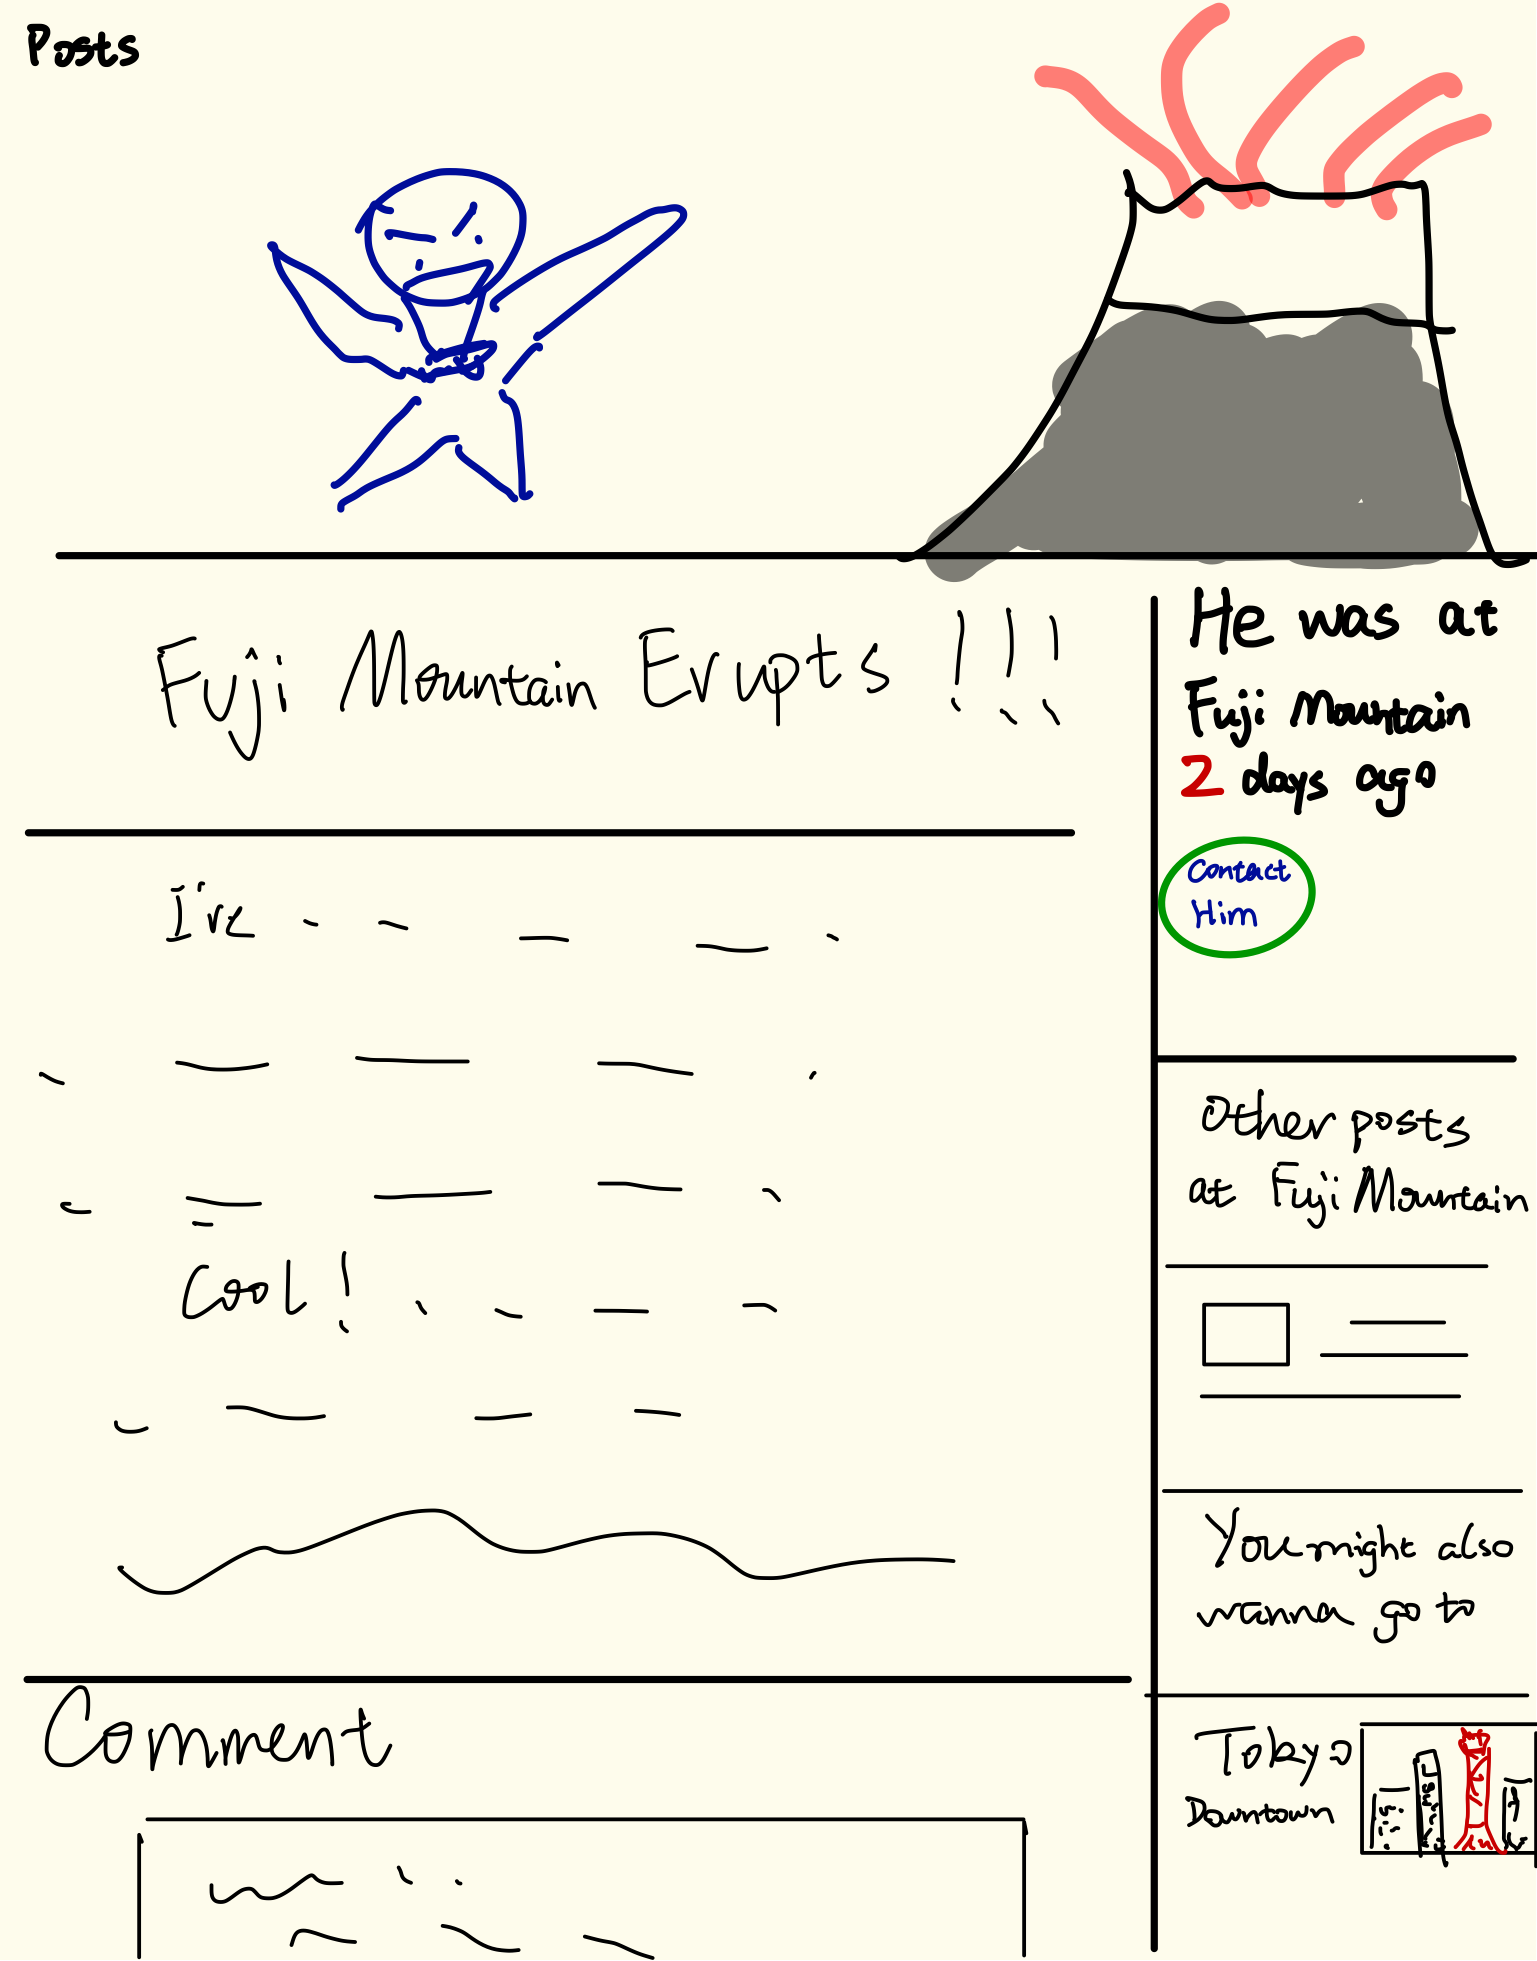 Posts
Fuji Mountain Erupts !!!
I've
Cool!
Comment
He was at
Fuji Mountain
2 days ago
Contact
Him
Other posts
at Fuji Mountain
You might also
wanna go to
Tokyo
Downtown